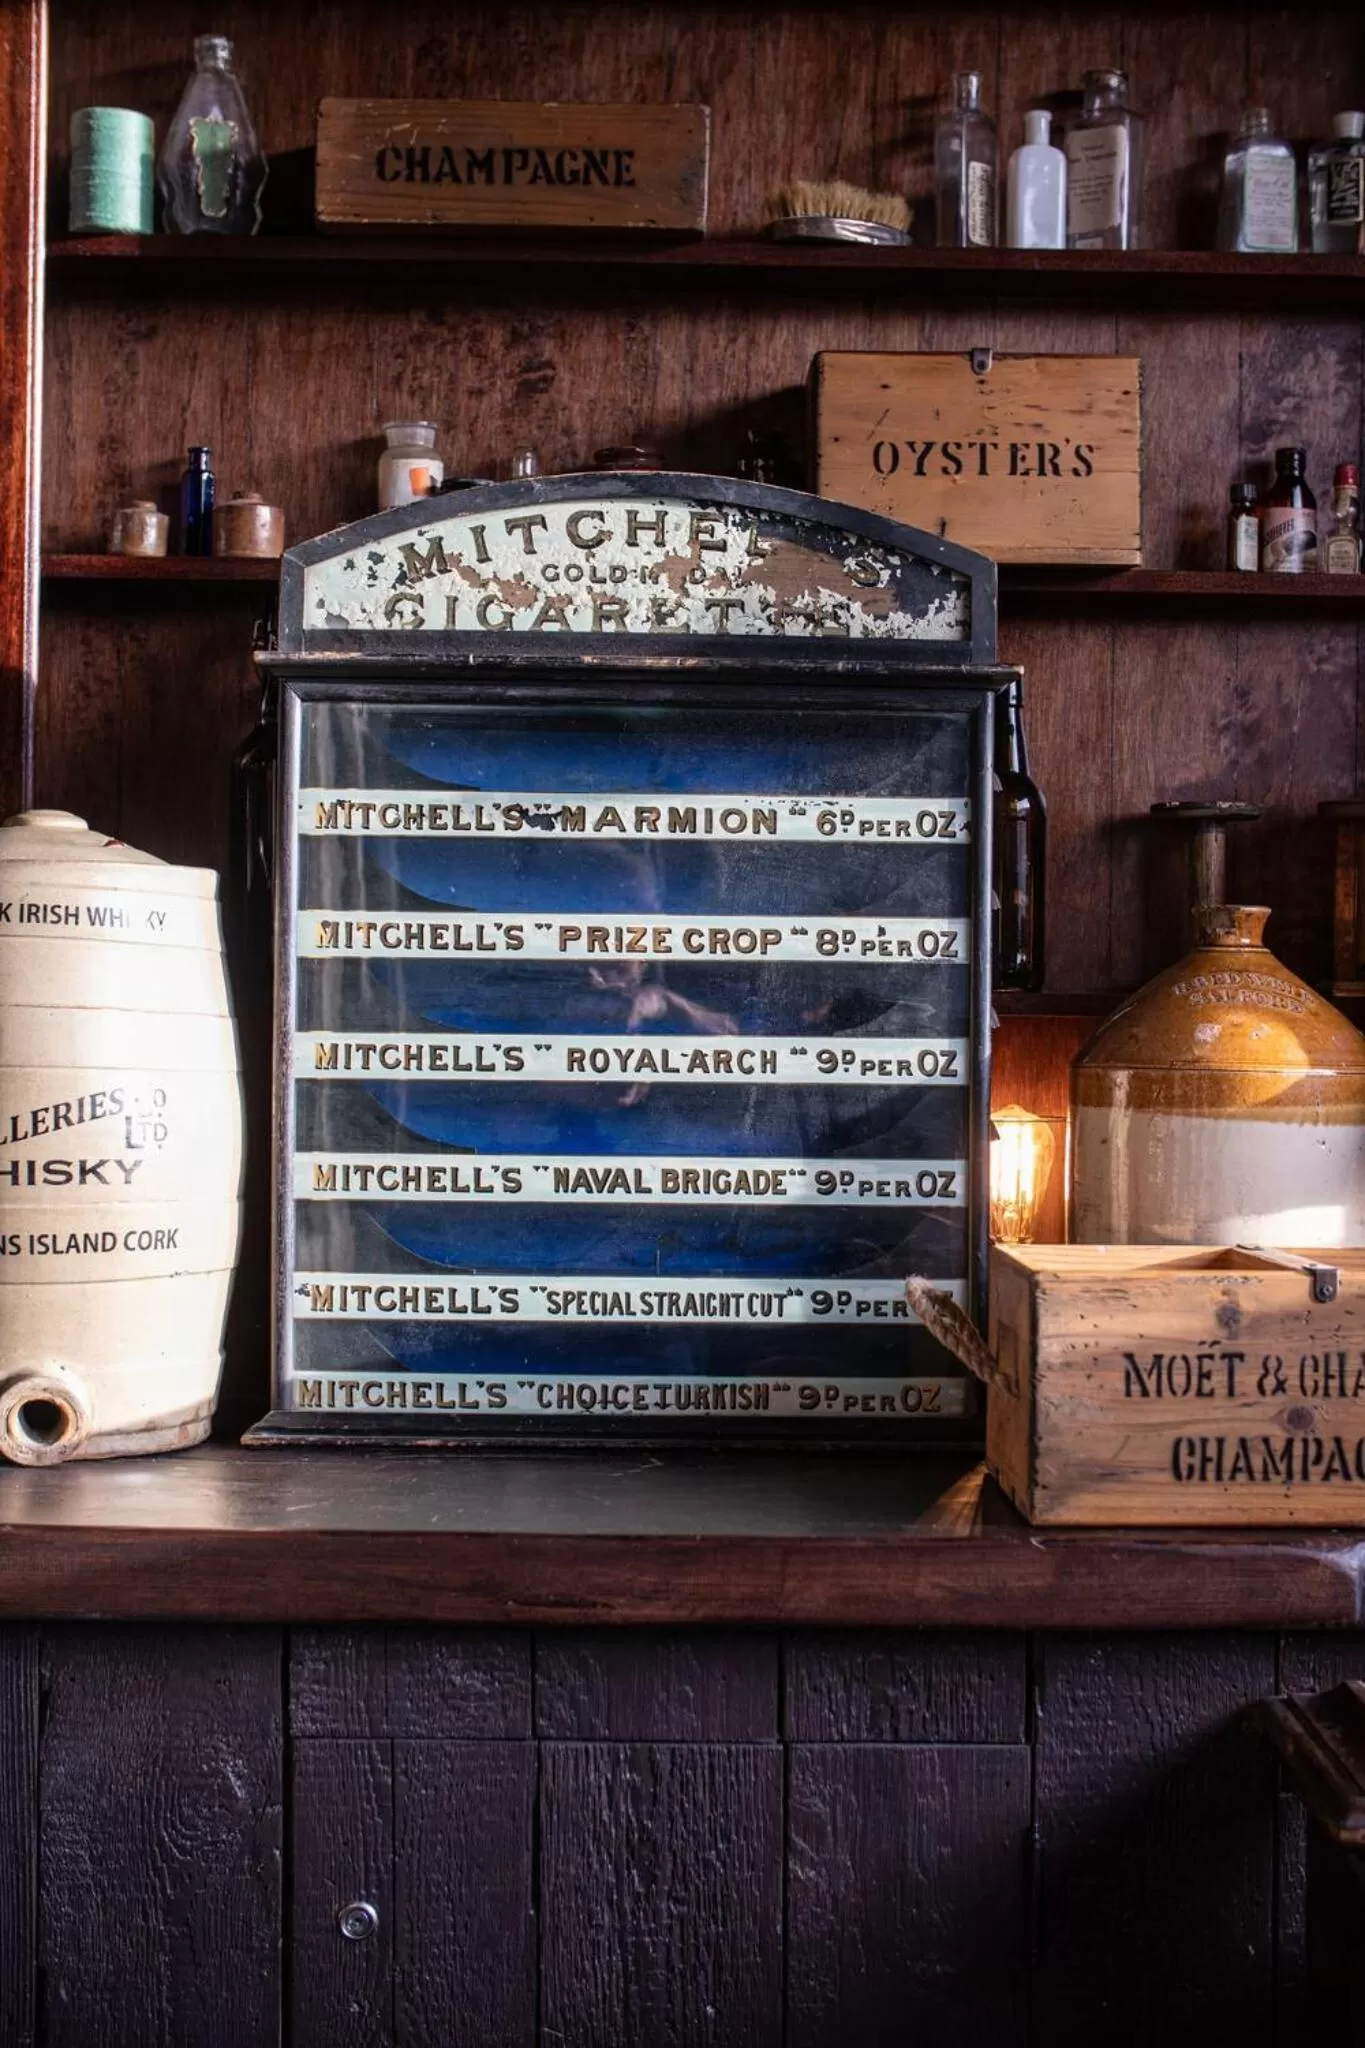 CHAMPAGNE
OYSTER'S
MITCHEL S
GOLD
CIGARETTE
MITCHELL'S "MARMION" 6D PER OZ
MITCHELL'S "PRIZE CROP" 8D PER OZ
MITCHELL'S "ROYAL ARCH" 9D PER OZ
MITCHELL'S "NAVAL BRIGADE" 9D PER OZ
MITCHELL'S "SPECIAL STRAIGHT CUT" 9D PER
MITCHELL'S "CHOICE TURKISH" 9D PER OZ
K IRISH WHI KY
LLERIES CO
LTD
HISKY
NS ISLAND CORK
SALFORD
MOËT & CHA
CHAMPAG